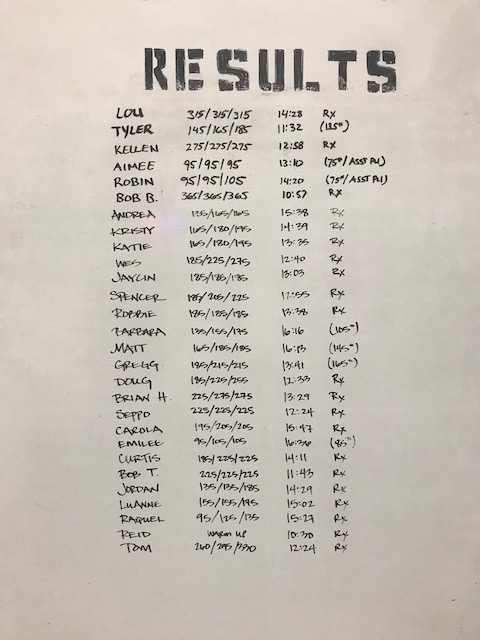 RESULTS
LOU 315/315/315 14:28 Rx
TYLER 145/165/185 11:32 (125#)
KELLEN 275/275/275 12:58 Rx
AIMEE 95/95/95 13:10 (75#/ASST PU)
ROBIN 95/95/105 14:20 (75#/ASST PU)
BOB B. 365/365/365 10:57 Rx
ANDREA 135/165/165 15:38 Rx
KRISTY 165/180/195 14:39 Rx
KATIE 165/180/195 13:35 Rx
WES 185/225/275 12:40 Rx
JAYLIN 185/185/185 13:03 Rx
SPENCER 185/205/225 12:55 Rx
ROBBIE 185/185/185 13:38 Rx
BARBARA 135/155/175 16:16 (105#)
MATT 165/185/185 16:13 (145#)
GREGG 185/215/215 13:41 (165#)
DOUG 185/225/255 12:33 Rx
BRIAN H. 225/275/275 13:29 Rx
SEPPO 225/225/225 12:24 Rx
CAROLA 195/205/205 15:47 Rx
EMILEE 95/105/105 16:36 (85#)
CURTIS 185/225/225 14:11 Rx
BOB T. 225/225/225 11:43 Rx
JORDAN 135/135/185 14:29 Rx
LUANNE 155/155/175 15:02 Rx
RAQUEL 95/125/135 15:27 Rx
REID WARM UP 10:30 Rx
TOM 260/295/330 12:24 Rx